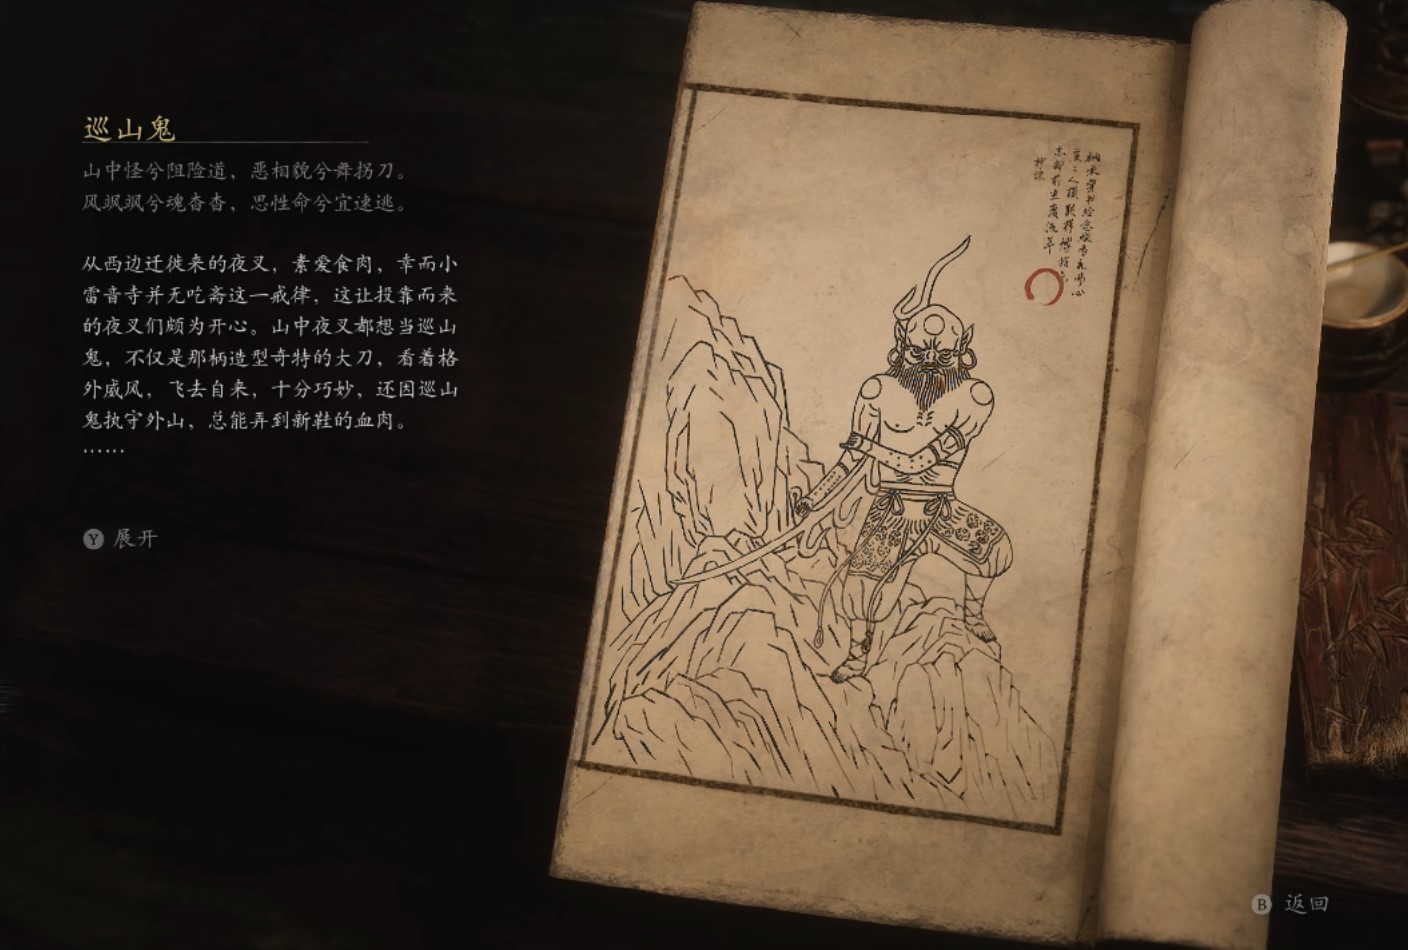 巡山鬼
山中怪兮阻险道，恶相貌兮舞拐刀。
风飒飒兮魂杳杳，思性命兮宜速逃。
从西边迁徙来的夜叉，素爱食肉，幸而小
雷音寺并无吃斋这一戒律，这让投靠而来
的夜叉们颇为开心。山中夜叉都想当巡山
鬼，不仅是那柄造型奇特的大刀，看着格
外威风，飞去自来，十分巧妙，还因巡山
鬼执守外山，总能弄到新鞋的血肉。
……
Y 展开
B 返回